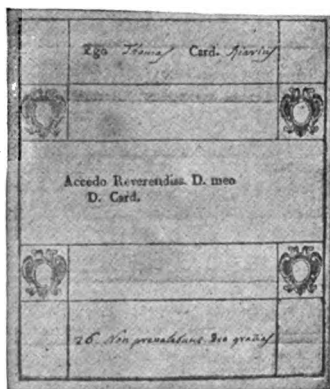 Ego Thomas Card. Riarius
Accedo Reverendiss. D. meo
D. Card.
26. Non prevalebunt Deo gratias